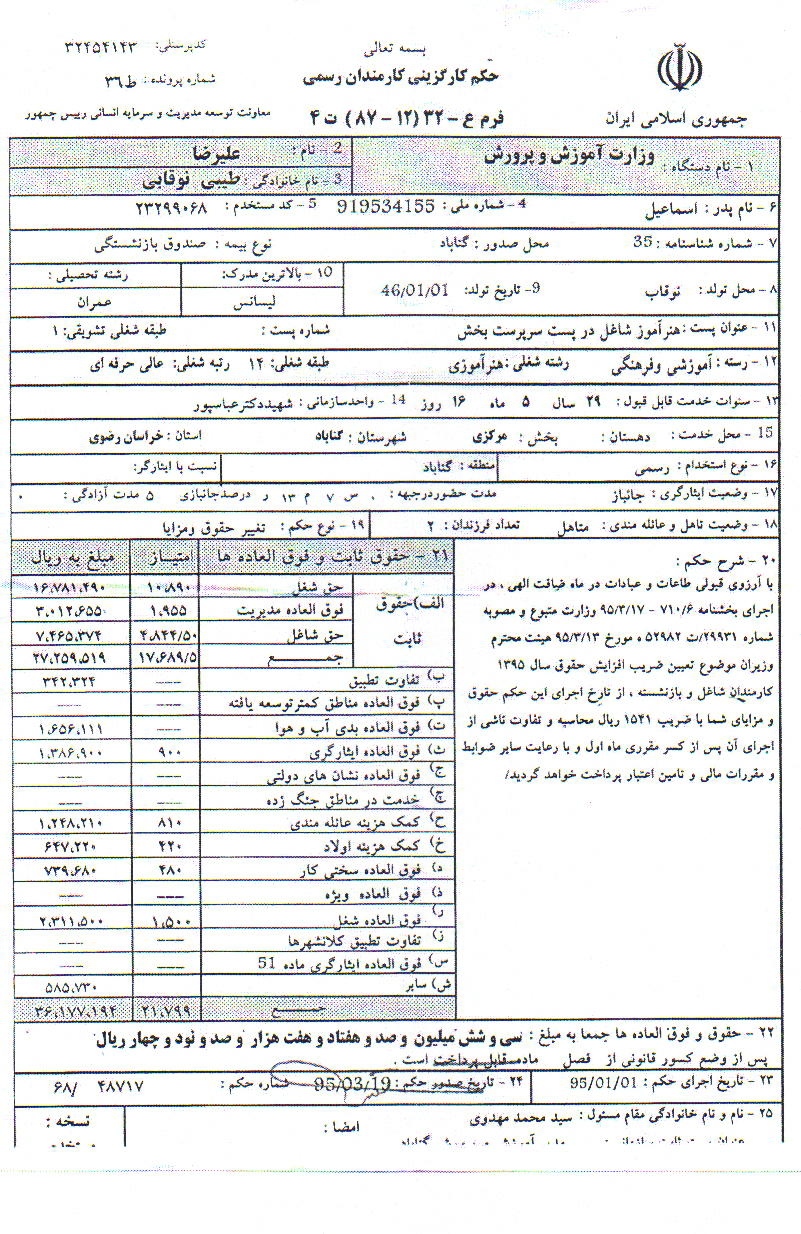 بسمه تعالی
حکم کارگزینی کارمندان رسمی
فرم ع - ۳۲ (۱۲ - ۸۷) ت ۴
جمهوری اسلامی ایران
کدپرسنلی: ۳۲۴۵۴۱۴۳
شماره پرونده: ط۳۶
معاونت توسعه مدیریت و سرمایه انسانی رییس جمهور
۱ - نام دستگاه : وزارت آموزش و پرورش
2 - نام : علیرضا
3 - نام خانوادگی : طیبی نوقابی
۶ - نام پدر : اسماعیل 4 - شماره ملی : 919534155 5 - کد مستخدم : ۲۳۲۹۹۰۶۸
۷ - شماره شناسنامه : 35 محل صدور : گناباد نوع بیمه : صندوق بازنشستگی
۸ - محل تولد : نوقاب 9- تاریخ تولد: 46/01/01 ۱۰ - بالاترین مدرک: لیسانس رشته تحصیلی : عمران
۱۱ - عنوان پست : هنرآموز شاغل در پست سرپرست بخش شماره پست : طبقه شغلی تشویقی: ۱
۱۲ - رسته : آموزشی وفرهنگی رشته شغلی : هنرآموزی طبقه شغلی: ۱۴ رتبه شغلی: عالی حرفه ای
۱۳ - سنوات خدمت قابل قبول : ۲۹ سال ۵ ماه ۱۶ روز 14 - واحدسازمانی : شهیددکترعباسپور
15 - محل خدمت : دهستان : بخش : مرکزی شهرستان : گناباد استان : خراسان رضوی
۱۶ - نوع استخدام : رسمی منطقه : گناباد نسبت با ایثارگر:
۱۷ - وضعیت ایثارگری : جانباز مدت حضوردرجبهه : ۰ س ۷ م ۱۳ ر درصدجانبازی ۵ مدت آزادگی : ۰
۱۸ - وضعیت تاهل و عائله مندی : متاهل تعداد فرزندان : ۲ ۱۹ - نوع حکم : تغییر حقوق ومزایا
۲۰ - شرح حکم :
با آرزوی قبولی طاعات و عبادات در ماه ضیافت الهی ، در
اجرای بخشنامه ۷۱۰/۶ - ۹۵/۳/۱۷ وزارت متبوع و مصوبه
شماره ۲۹۹۳۱/ت ۵۲۹۸۲ ه مورخ ۹۵/۳/۱۳ هیئت محترم
وزیران موضوع تعیین ضریب افزایش حقوق سال ۱۳۹۵
کارمندان شاغل و بازنشسته ، از تاریخ اجرای این حکم حقوق
و مزایای شما با ضریب ۱۵۴۱ ریال محاسبه و تفاوت ناشی از
اجرای آن پس از کسر مقرری ماه اول و با رعایت سایر ضوابط
و مقررات مالی و تامین اعتبار پرداخت خواهد گردید/
۲۱ - حقوق ثابت و فوق العاده ها امتیاز مبلغ به ریال
الف)حقوق ثابت
حق شغل ۱۰،۸۹۰ ۱۶،۷۸۱،۴۹۰
فوق العاده مدیریت ۱،۹۵۵ ۳،۰۱۲،۶۵۵
حق شاغل ۴،۸۴۴/۵۰ ۷،۴۶۵،۳۷۴
جمع ۱۷،۶۸۹/۵ ۲۷،۲۵۹،۵۱۹
ب) تفاوت تطبیق ۳۴۲،۳۲۴
پ) فوق العاده مناطق کمترتوسعه یافته --- ---
ت) فوق العاده بدی آب و هوا --- ۱،۶۵۶،۱۱۱
ث) فوق العاده ایثارگری ۹۰۰ ۱،۳۸۶،۹۰۰
ج) فوق العاده نشان های دولتی --- ---
چ) خدمت در مناطق جنگ زده --- ---
ح) کمک هزینه عائله مندی ۸۱۰ ۱،۲۴۸،۲۱۰
خ) کمک هزینه اولاد ۴۲۰ ۶۴۷،۲۲۰
د) فوق العاده سختی کار ۴۸۰ ۷۳۹،۶۸۰
ذ) فوق العاده ویژه --- ---
ر) فوق العاده شغل ۱،۵۰۰ ۲،۳۱۱،۵۰۰
ز) تفاوت تطبیق کلانشهرها --- ---
س) فوق العاده ایثارگری ماده 51 --- ---
ش) سایر ۵۸۵،۷۳۰
جمع ۲۱،۷۹۹ ۳۶،۱۷۷،۱۹۴
۲۲ - حقوق و فوق العاده ها جمعا به مبلغ : سی و شش میلیون و صد و هفتاد و هفت هزار و صد و نود و چهار ریال
پس از وضع کسور قانونی از فصل ماده قابل پرداخت است .
۲۳ - تاریخ اجرای حکم : 95/01/01 ۲۴ - تاریخ صدور حکم : 95/03/19 شماره حکم : ۴۸۷۱۷ /۶۸
۲۵ - نام و نام خانوادگی مقام مسئول : سید محمد مهدوی امضا : نسخه :